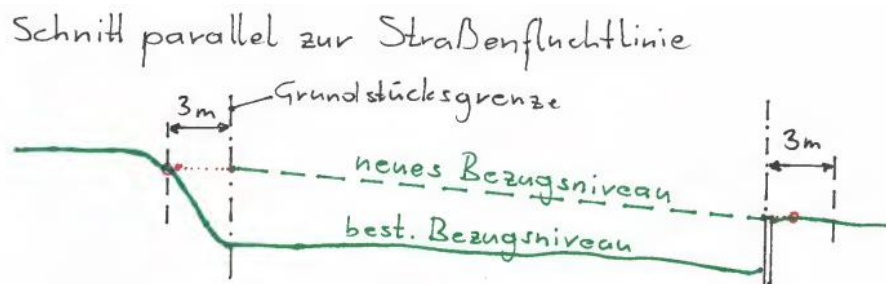 Schnitt parallel zur Straßenfluchtlinie
Grundstücksgrenze
3m
3m
neues Bezugsniveau
best. Bezugsniveau